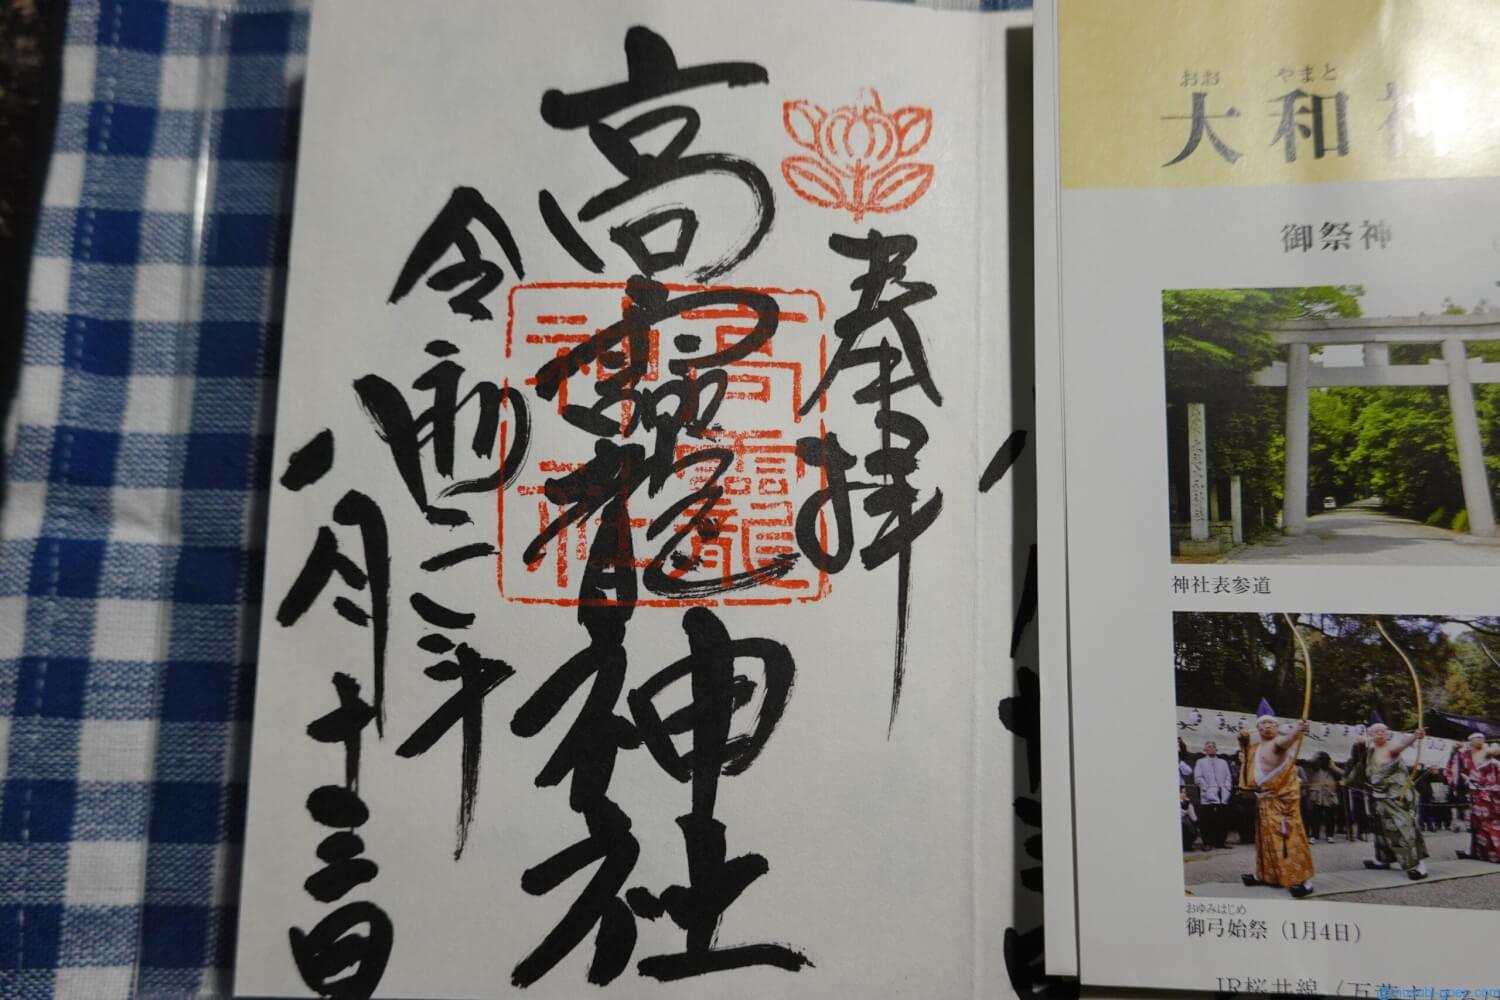 奉拝
高龗神社
高龗
神社
令和二年
一月十三日
おお やまと
大和神
御祭神
神社表参道
おゆみはじめ
御弓始祭（1月4日）
JR桜井線（万葉ま